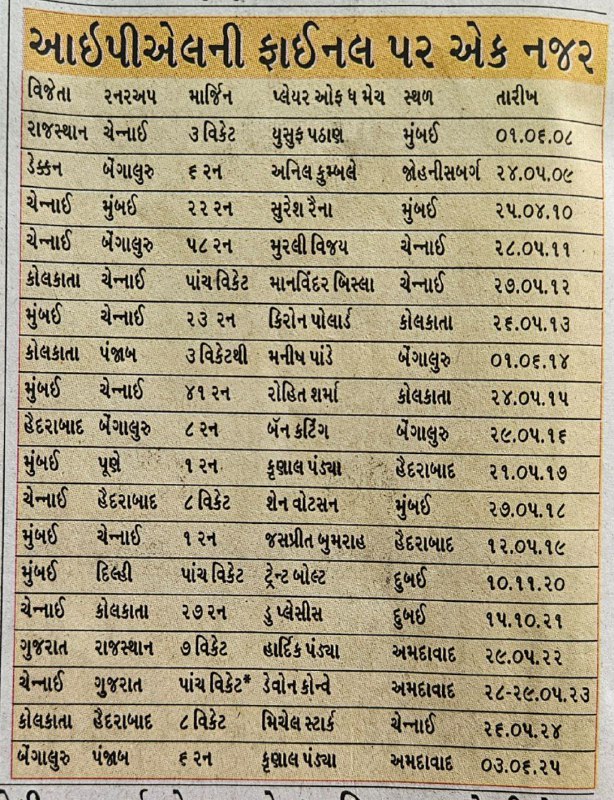 આઈપીએલની ફાઈનલ પર એક નજર
વિજેતા રનરઅપ માર્જિન પ્લેયર ઓફ ધ મેચ સ્થળ તારીખ
રાજસ્થાન ચેન્નાઈ ૩ વિકેટ યુસુફ પઠાણ મુંબઈ ૦૧.૦૬.૦૮
ડેક્કન બેંગાલુરુ ૬ રન અનિલ કુમ્બલે જોહનીસબર્ગ ૨૪.૦૫.૦૯
ચેન્નાઈ મુંબઈ ૨૨ રન સુરેશ રૈના મુંબઈ ૨૫.૦૪.૧૦
ચેન્નાઈ બેંગાલુરુ ૫૮ રન મુરલી વિજય ચેન્નાઈ ૨૮.૦૫.૧૧
કોલકાતા ચેન્નાઈ પાંચ વિકેટ માનવિંદર બિસ્લા ચેન્નાઈ ૨૭.૦૫.૧૨
મુંબઈ ચેન્નાઈ ૨૩ રન કિરોન પોલાર્ડ કોલકાતા ૨૬.૦૫.૧૩
કોલકાતા પંજાબ ૩ વિકેટથી મનીષ પાંડે બેંગાલુરુ ૦૧.૦૬.૧૪
મુંબઈ ચેન્નાઈ ૪૧ રન રોહિત શર્મા કોલકાતા ૨૪.૦૫.૧૫
હૈદરાબાદ બેંગાલુરુ ૮ રન બૅન કટિંગ બેંગાલુરુ ૨૯.૦૫.૧૬
મુંબઈ પૂણે ૧ રન કૃણાલ પંડ્યા હૈદરાબાદ ૨૧.૦૫.૧૭
ચેન્નાઈ હૈદરાબાદ ૮ વિકેટ શેન વોટસન મુંબઈ ૨૭.૦૫.૧૮
મુંબઈ ચેન્નાઈ ૧ રન જસપ્રીત બુમરાહ હૈદરાબાદ ૧૨.૦૫.૧૯
મુંબઈ દિલ્હી પાંચ વિકેટ ટ્રેન્ટ બોલ્ટ દુબઈ ૧૦.૧૧.૨૦
ચેન્નાઈ કોલકાતા ૨૭ રન ડુ પ્લેસીસ દુબઈ ૧૫.૧૦.૨૧
ગુજરાત રાજસ્થાન ૭ વિકેટ હાર્દિક પંડ્યા અમદાવાદ ૨૯.૦૫.૨૨
ચેન્નાઈ ગુજરાત પાંચ વિકેટ* ડેવોન કોન્વે અમદાવાદ ૨૮-૨૯.૦૫.૨૩
કોલકાતા હૈદરાબાદ ૮ વિકેટ મિચેલ સ્ટાર્ક ચેન્નાઈ ૨૬.૦૫.૨૪
બેંગાલુરુ પંજાબ ૬ રન કૃણાલ પંડ્યા અમદાવાદ ૦૩.૦૬.૨૫